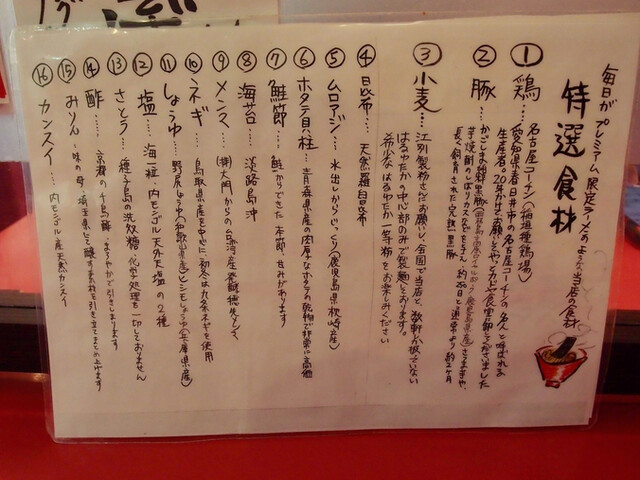 毎日がプレミアム限定ラーメンのような当店の食材
特選食材
① 鶏… 名古屋コーチン(稲垣種鶏場)
愛知県春日井市の名古屋コーチンの名人と呼ばれる
生産者 20年かけてお願いしてやっと
② 豚… かごしま純粋黒豚
芋焼酎のしぼりカスなどを与え 約
長く飼育された完熟黒豚
③ 小麦… 江別製粉さんにお願いし、全国で当店と数軒しか扱っていない
はるゆたかの中心部のみで製麺しております。
希少なはるゆたか一等粉をお楽しみください
④ 昆布… 天然羅臼昆布
⑤ ムロアジ… 水出しからじっくり(鹿児島県枕崎産)
⑥ ホタテ貝柱… 青森県産の肉厚なホタテの乾物で非常に高価
⑦ 鮭節… 鮭からできた本節 甘みがあります
⑧ 海苔… 淡路島沖
⑨ メンマ… (株)大門からの台湾産発酵穂先メンマ
⑩ ネギ… 鳥取県産を中心に初冬は九条ネギを使用
⑪ しょうゆ… 野尻しょうゆ(和歌山県産)とシモしょうゆ(兵庫県産)
⑫ 塩… 海一粒 内モンゴル天外天塩の2種
⑬ さとう… 種子島の洗双糖 化学処理を一切しておりません
⑭ 酢… 京都の千鳥酢 まろやかで引きしまります
⑮ みりん… 味の母 埼玉県にて醸す素材を引き立てまとめ上げます
⑯ カンスイ… 内モンゴル産天然カンスイ